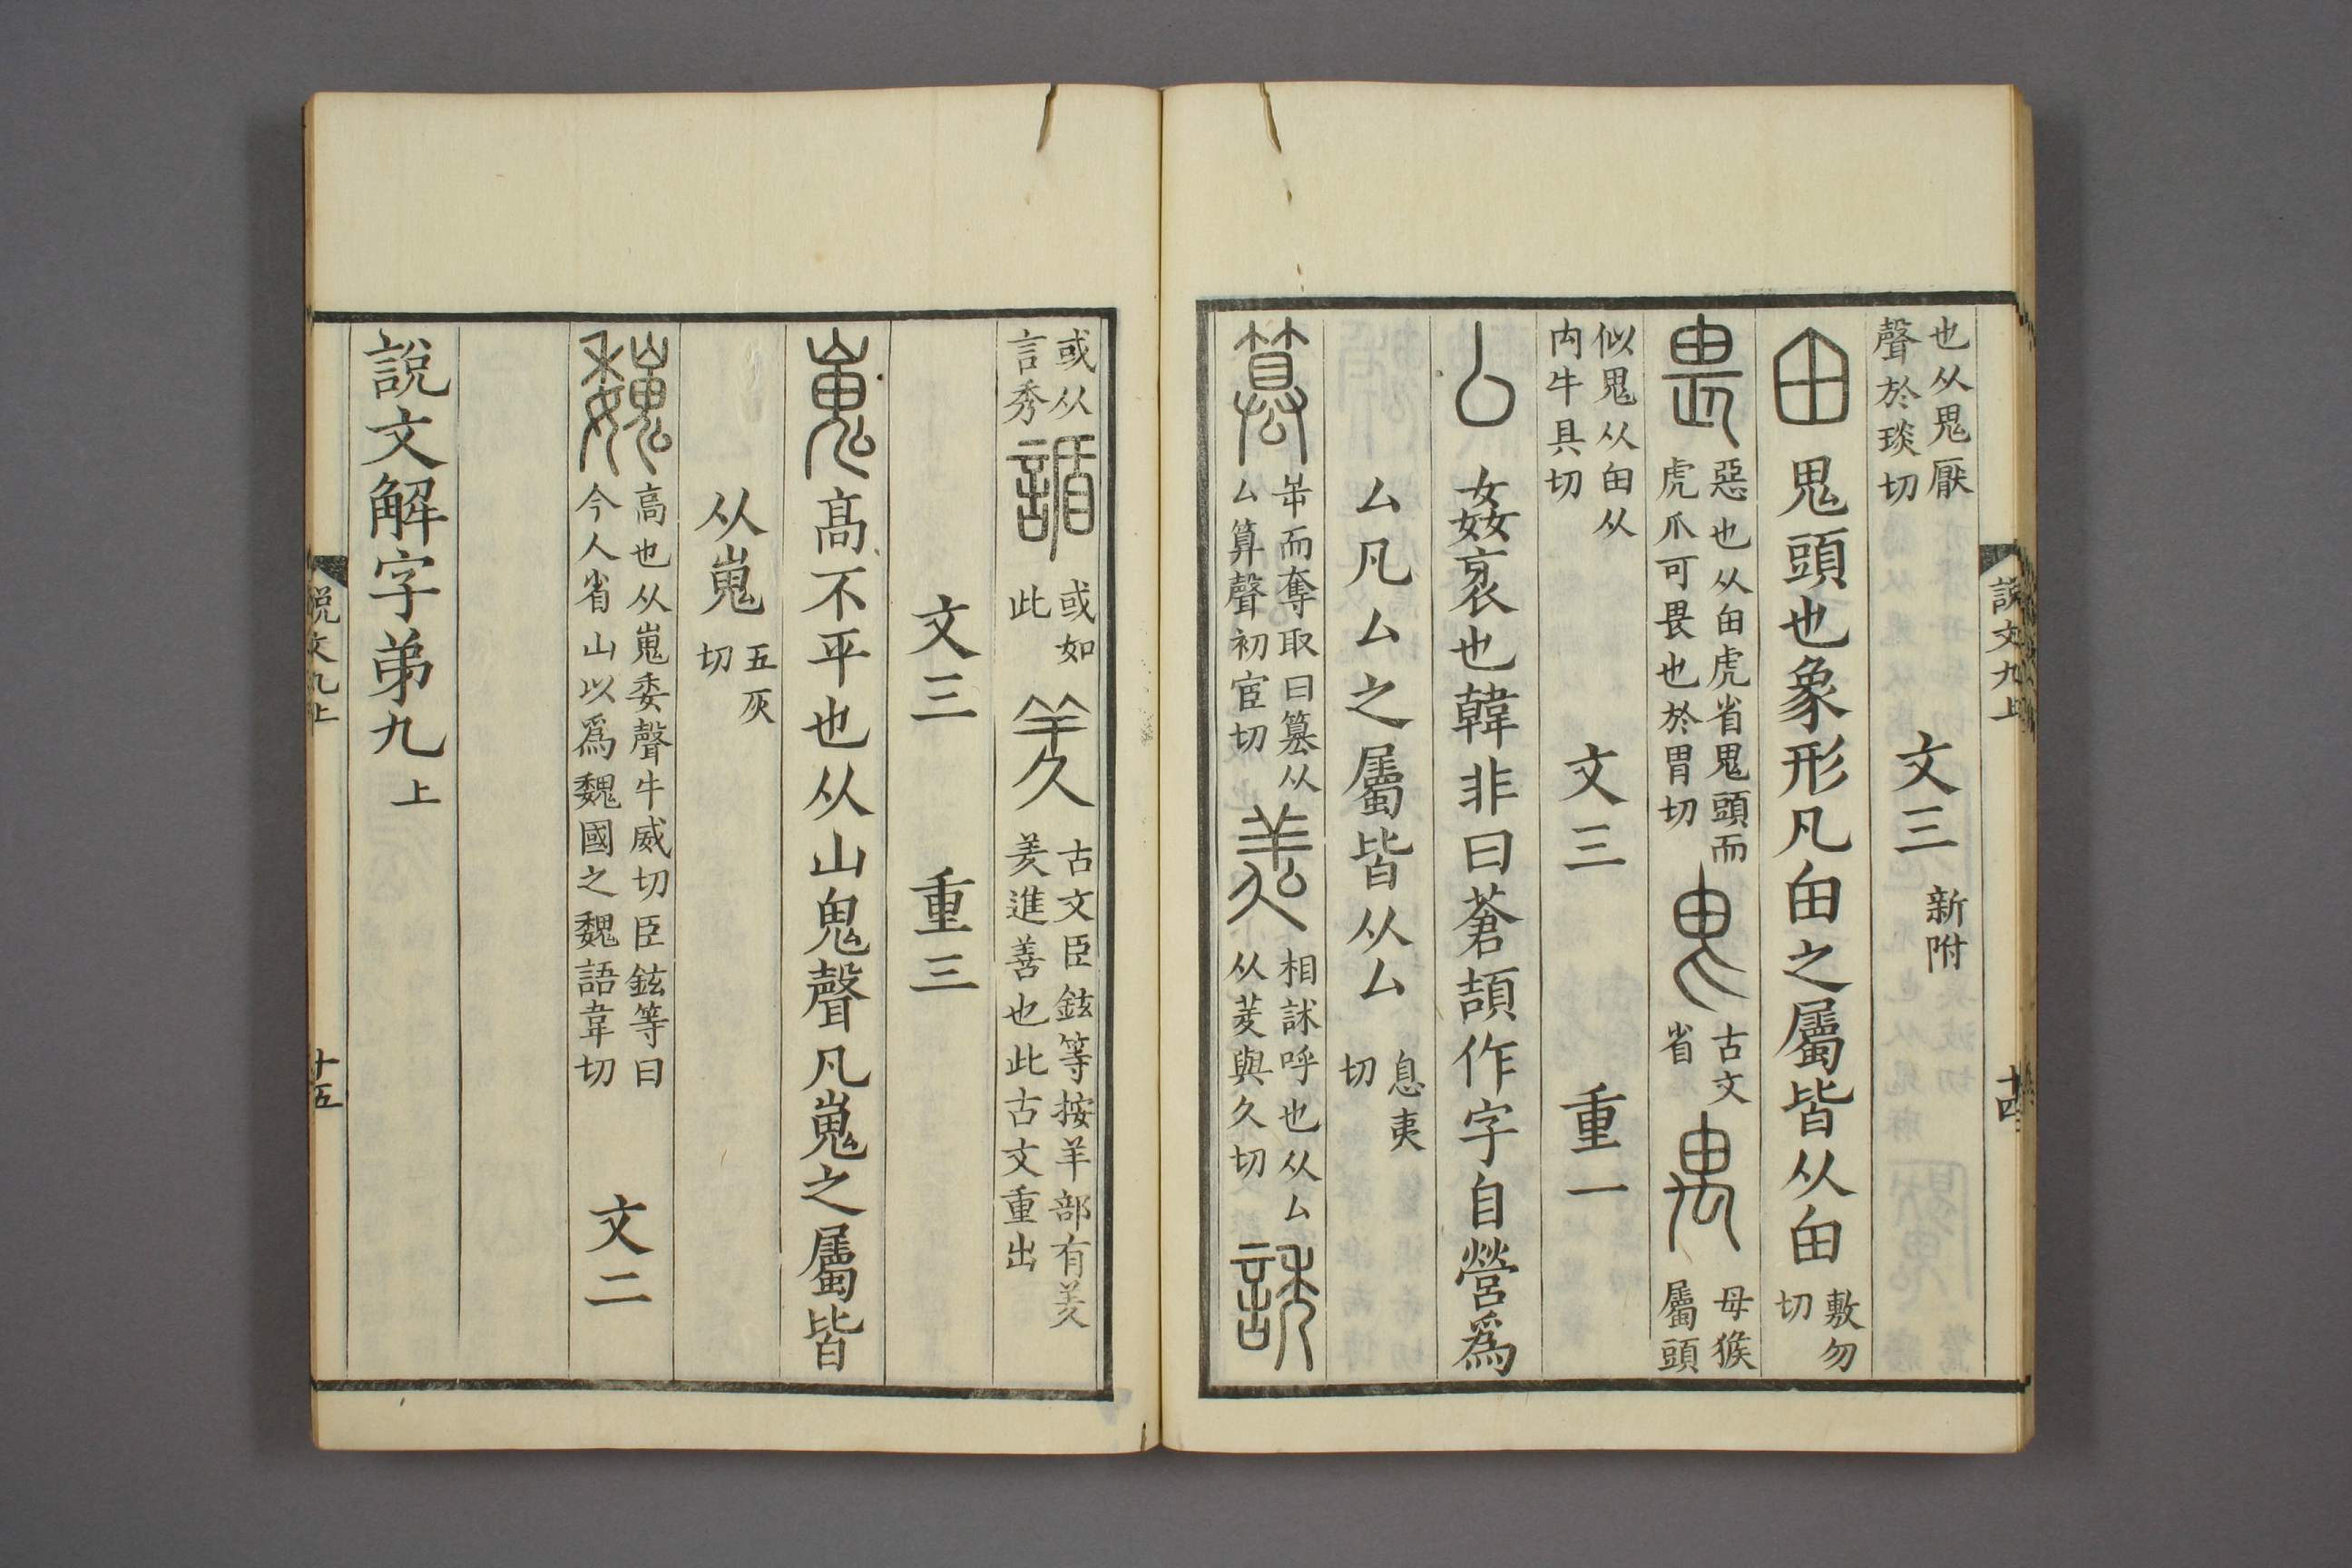 也从鬼厭
聲於琰切
文三
新附
甶
鬼頭也象形凡甶之屬皆从甶
敷勿
切
畏
惡也从甶虎省鬼頭而
虎爪可畏也於胃切
古文
省
禺
母猴
屬頭
似鬼从甶从
禸牛具切
文三 重一
厶
姦衺也韓非曰蒼頡作字自營爲
厶凡厶之屬皆从厶
息夷
切
篡
屰而奪取曰篡从
厶算聲初宦切
相訹呼也从厶
从羑與久切
誘
或从
言秀
䛻
或如
此
羑
古文臣鉉等按羊部有羑
羑進善也此古文重出
文三 重三
嵬
高不平也从山鬼聲凡嵬之屬皆
从嵬
五灰
切
巍
高也从嵬委聲牛威切臣鉉等曰
今人省山以爲魏國之魏語韋切
文二
說文解字弟九上
說文九上
十四
說文九上
十五